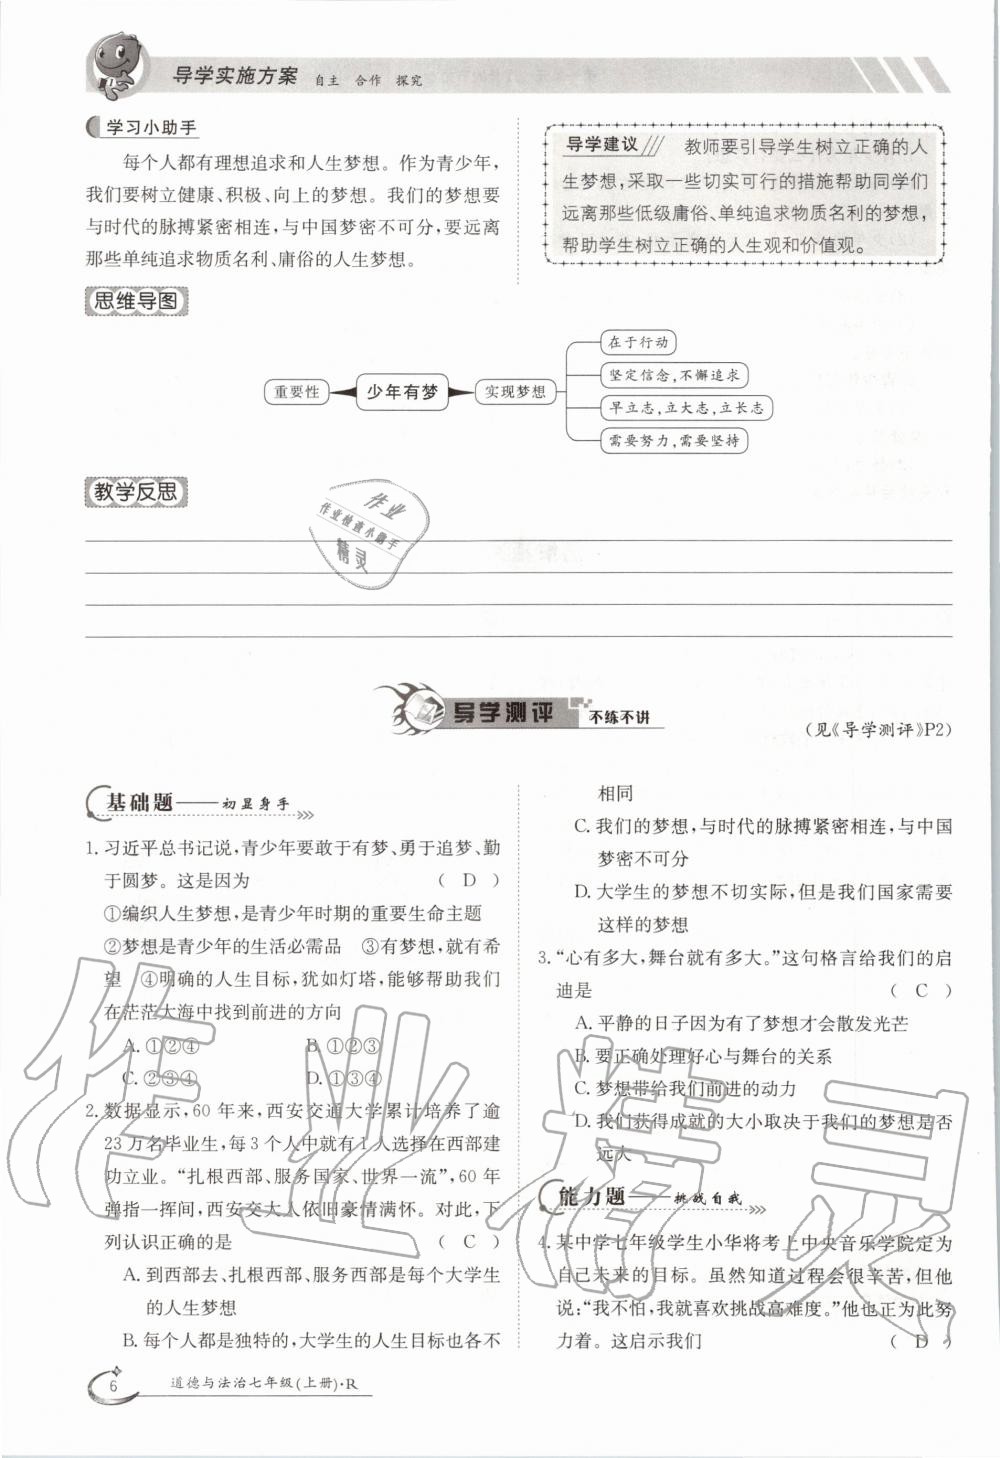 导学实施方案 自主 合作 探究
学习小助手
每个人都有理想追求和人生梦想。作为青少年,
我们要树立健康、积极、向上的梦想。我们的梦想要
与时代的脉搏紧密相连,与中国梦密不可分,要远离
那些单纯追求物质名利、庸俗的人生梦想。
导学建议 教师要引导学生树立正确的人
生梦想,采取一些切实可行的措施帮助同学们
远离那些低级庸俗、单纯追求物质名利的梦想,
帮助学生树立正确的人生观和价值观。
思维导图
重要性
少年有梦
实现梦想
在于行动
坚定信念,不懈追求
早立志,立大志,立长志
需要努力,需要坚持
教学反思
作业
作业检查小助手
精灵
导学测评 不练不讲
(见《导学测评》P2)
基础题——初显身手
1. 习近平总书记说,青少年要敢于有梦、勇于追梦、勤
于圆梦。这是因为 ( D )
①编织人生梦想,是青少年时期的重要生命主题
②梦想是青少年的生活必需品 ③有梦想,就有希
望 ④明确的人生目标,犹如灯塔,能够帮助我们
在茫茫大海中找到前进的方向
A. ①②④ B. ①②③
C. ②③④ D. ①③④
2. 数据显示,60 年来,西安交通大学累计培养了逾
23 万名毕业生,每 3 个人中就有 1 人选择在西部建
功立业。“扎根西部、服务国家、世界一流”,60 年
弹指一挥间,西安交大人依旧豪情满怀。对此,下
列认识正确的是 ( C )
A. 到西部去、扎根西部、服务西部是每个大学生
的人生梦想
B. 每个人都是独特的,大学生的人生目标也各不
相同
C. 我们的梦想,与时代的脉搏紧密相连,与中国
梦密不可分
D. 大学生的梦想不切实际,但是我们国家需要
这样的梦想
3. “心有多大,舞台就有多大。”这句格言给我们的启
迪是 ( C )
A. 平静的日子因为有了梦想才会散发光芒
B. 要正确处理好心与舞台的关系
C. 梦想带给我们前进的动力
D. 我们获得成就的大小取决于我们的梦想是否
远大
能力题——挑战自我
4. 某中学七年级学生小华将考上中央音乐学院定为
自己未来的目标。虽然知道过程会很辛苦,但他
说:“我不怕,我就喜欢挑战高难度。”他也正为此努
力着。这启示我们 ( D )
作业精灵
6 道德与法治七年级(上册)·R